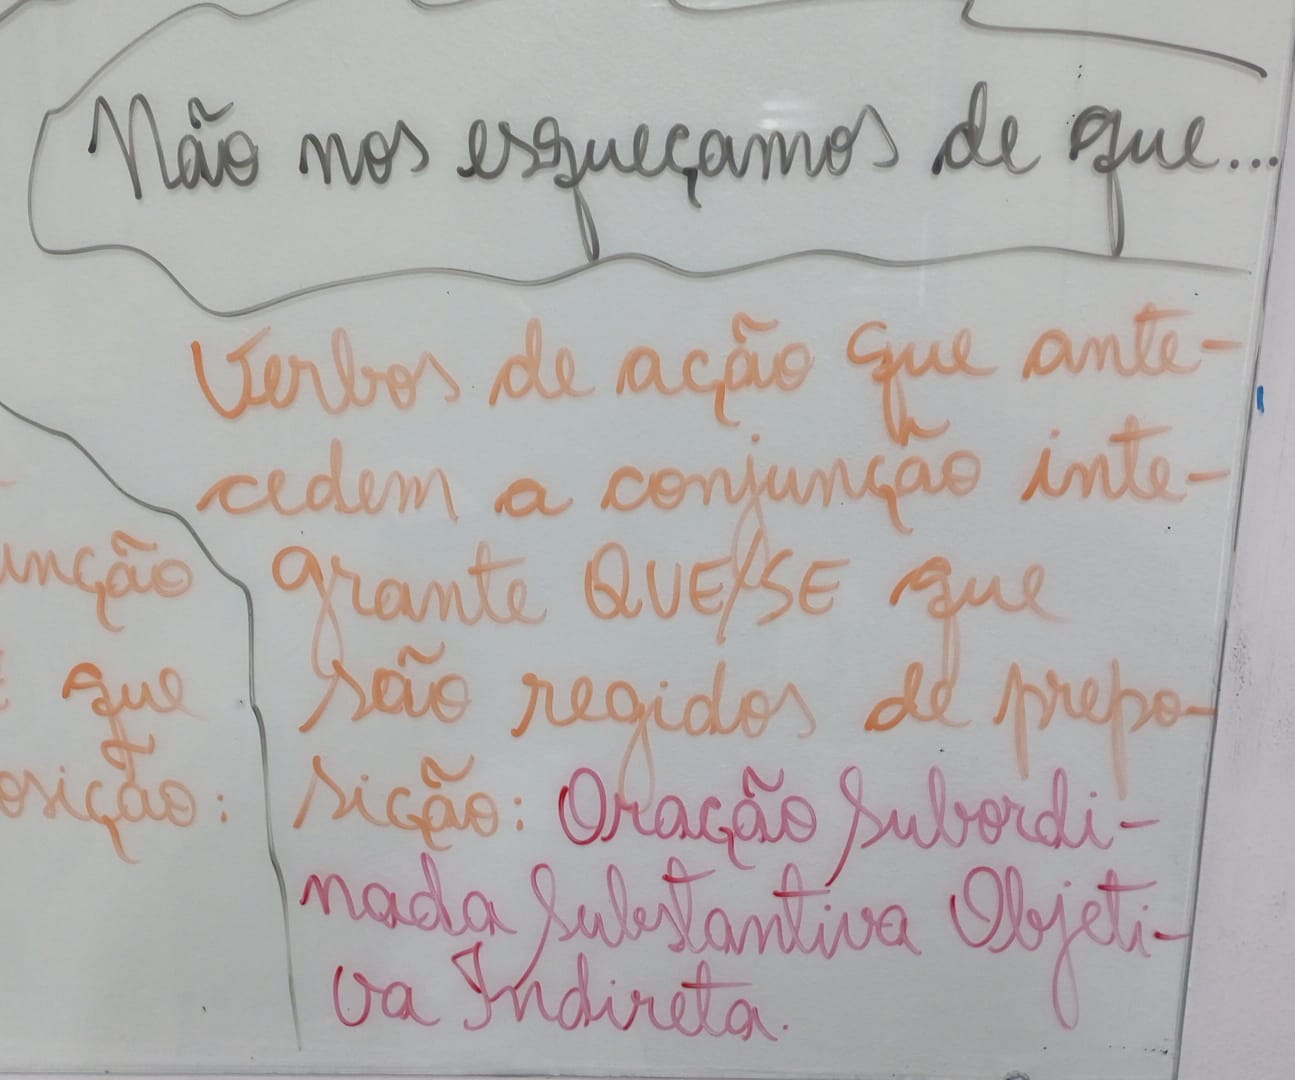 Não nos esqueçamos de que...
Verbos de ação que ante-
cedem a conjunção inte-
grante QUE/SE que
são regidos de prepo-
sição: Oração Subordi-
nada Substantiva Objeti-
va Indireta.
unção
que
osição: